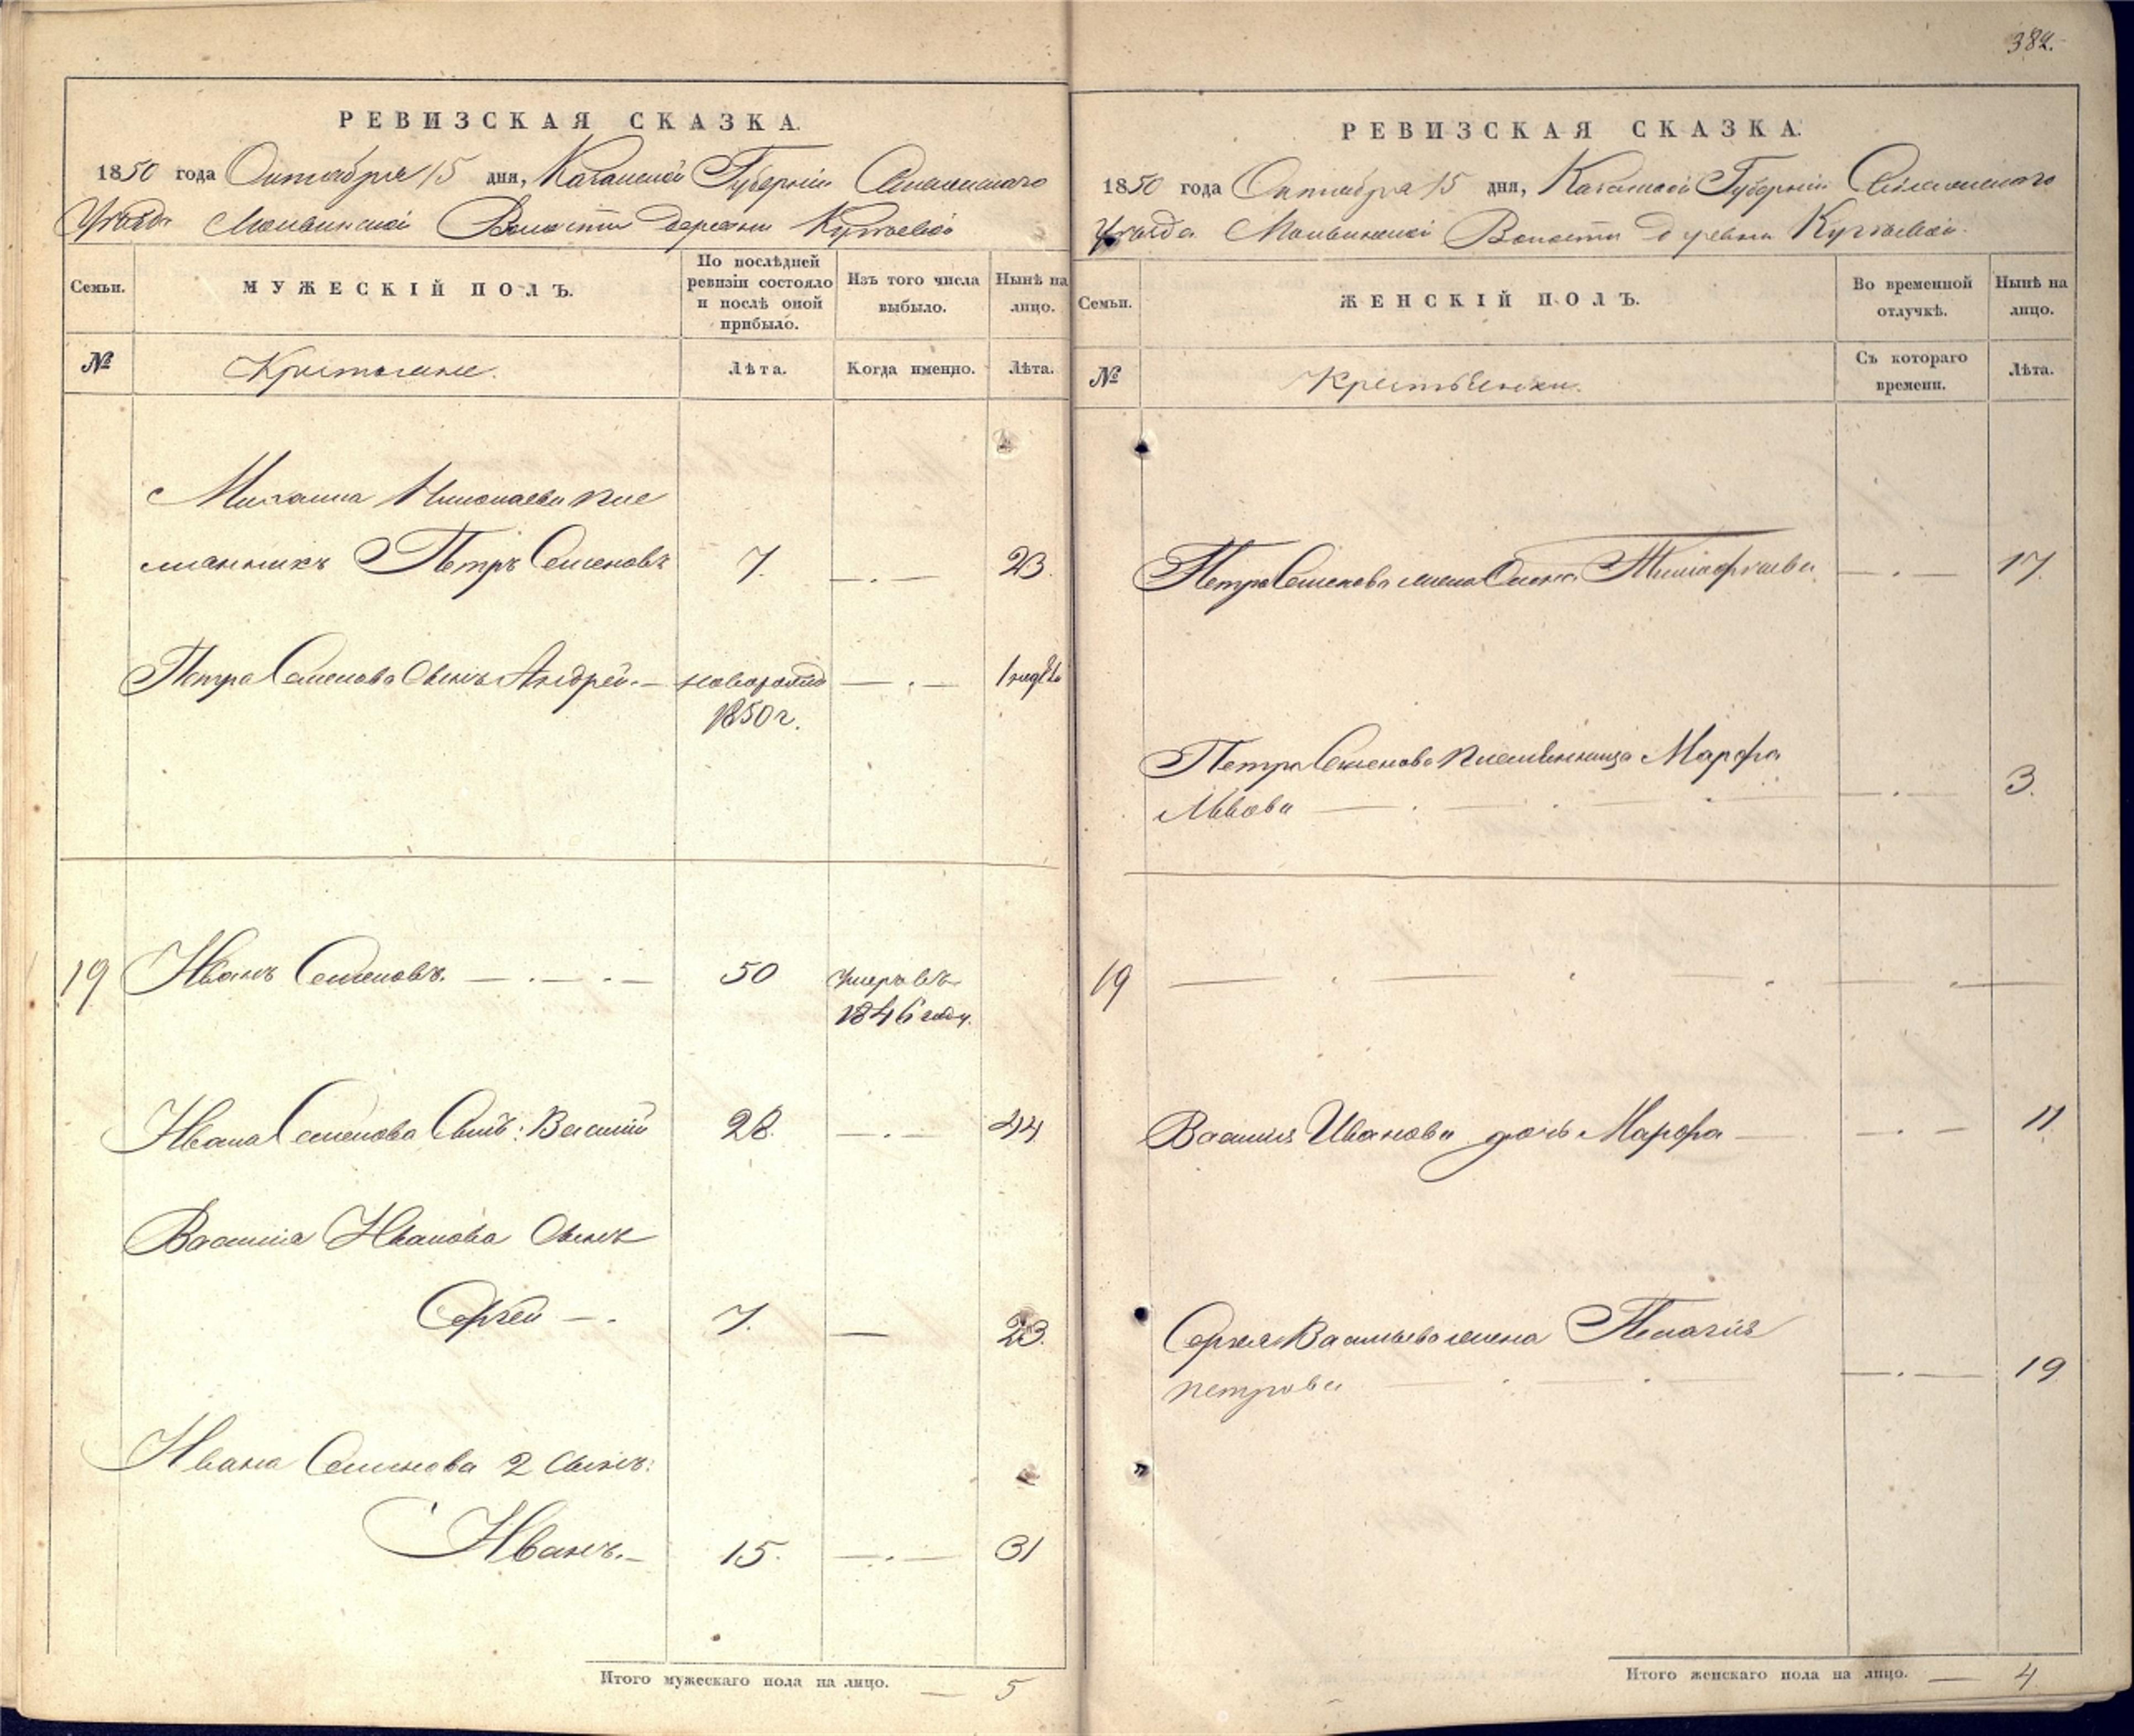 382.
РЕВИЗСКАЯ СКАЗКА.
1850 года Октября 15 дня, Казанской Губернии
Уезда Волости деревни Кугеевой
Семьи.
МУЖЕСКІЙ ПОЛЪ.
По послѣдней ревизіи состояло и послѣ оной прибыло.
Изъ того числа выбыло.
Нынѣ на лицо.
№
Крестьяне.
Лѣта.
Когда именно.
Лѣта.
Михаила Николаева пле
мянникъ Петръ Семеновъ 7. 23.
Петра Семенова сынъ Андрей. новорожд 1 недѣль
1850 г.
19 Иванъ Семеновъ. 50 умеръ въ
1846 году.
Ивана Семенова Сынъ: Василий 28. 44
Василия Иванова сынъ
Сергей 7. 23.
Ивана Семенова 2 сынъ:
Иванъ. 15. 31
Итого мужескаго пола на лицо. 5
РЕВИЗСКАЯ СКАЗКА.
1850 года Октября 15 дня, Казанской Губерніи
Уезда Волости деревни Кугеевой.
Семьи.
ЖЕНСКІЙ ПОЛЪ.
Во временной отлучкѣ.
Нынѣ на лицо.
№
Крестьянки.
Съ котораго времени.
Лѣта.
Петра Семенова жена 17.
Петра Семенова племянница Марфа
Львова 3.
19
Василия Иванова дочь Марфа 11.
Сергея Васильева жена Пелагия
петрова 19
Итого женскаго пола на лицо. 4